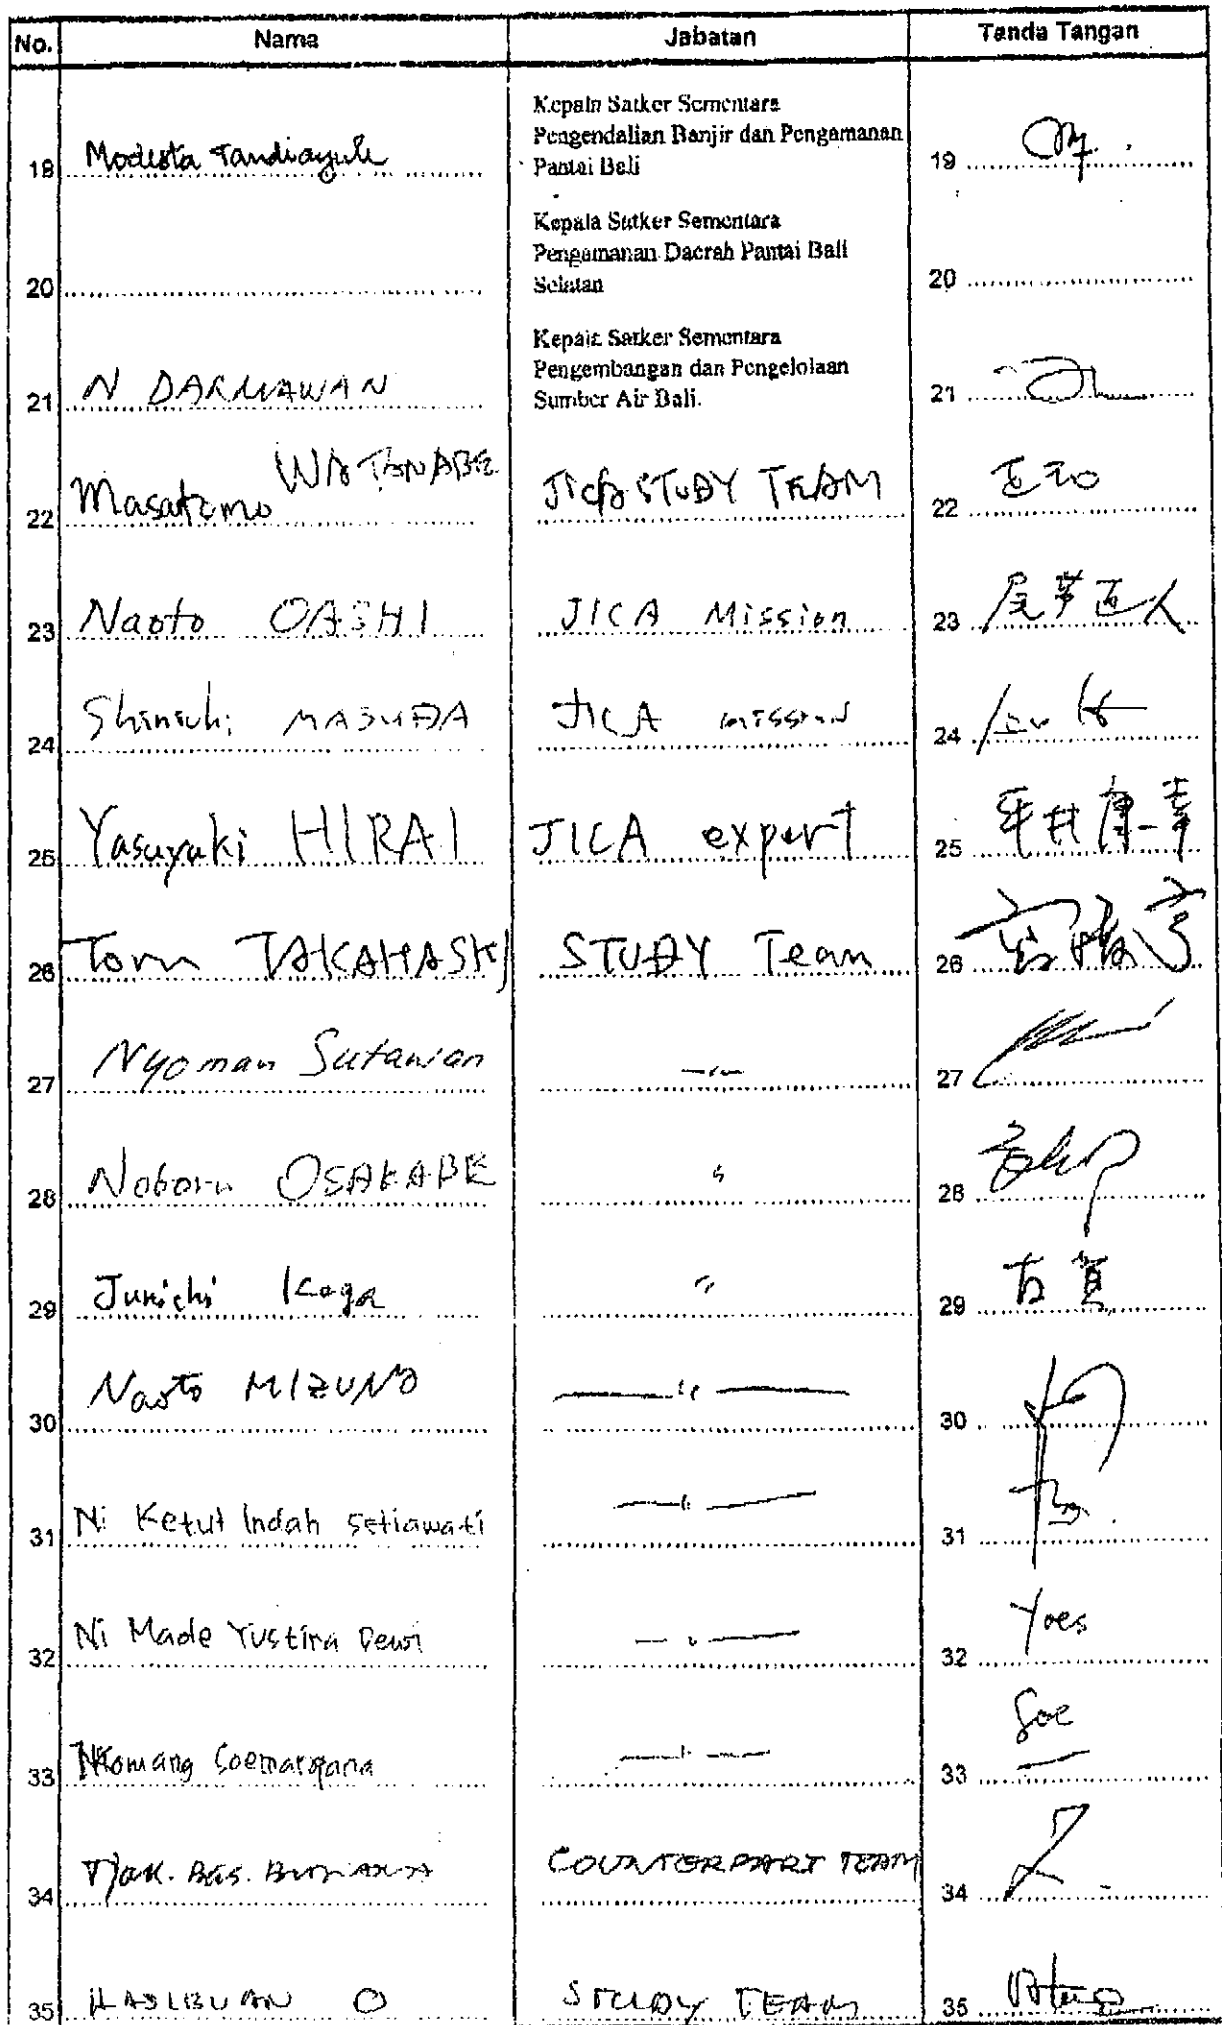 No. Nama Jabatan Tanda Tangan
Kepala Satker Sementara
Pengendalian Banjir dan Pengamanan
19 Modesta Tandiayuk Pantai Bali 19
Kepala Satker Sementara
Pengamanan Daerah Pantai Bali
20 Selatan 20
Kepala Satker Sementara
Pengembangan dan Pengelolaan
21 N DARMAWAN Sumber Air Bali. 21
22 Masatomo WATANABE JICA STUDY TEAM 22
23 Naoto OASHI JICA Mission 23 尾芦直人
24 Shinichi MASUDA JICA mission 24
25 Yasuyuki HIRAI JICA expert 25 平井康幸
26 Toru TAKAHASHI STUDY Team 26
27 Nyoman Sutawan —〃— 27
28 Noboru OSAKABE 〃 28
29 Junichi Koga 〃 29 古賀
30 Naoto MIZUNO —〃— 30
31 Ni Ketut Indah Setiawati —〃— 31
32 Ni Made Yustira Dewi —〃— 32 Yoes
33 Komang Soemargana —〃— 33 Soe
34 Tjok. Bgs. COUNTERPART TEAM 34
35 HASIBUAN O STUDY TEAM 35